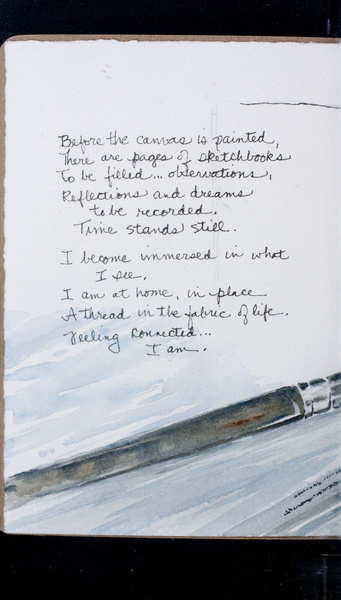 Before the canvas is painted,
There are pages of sketchbooks
To be filled... observations,
Reflections and dreams
to be recorded.
Time stands still.
I become immersed in what
I see.
I am at home, in place
A thread in the fabric of life.
Feeling connected...
I am.